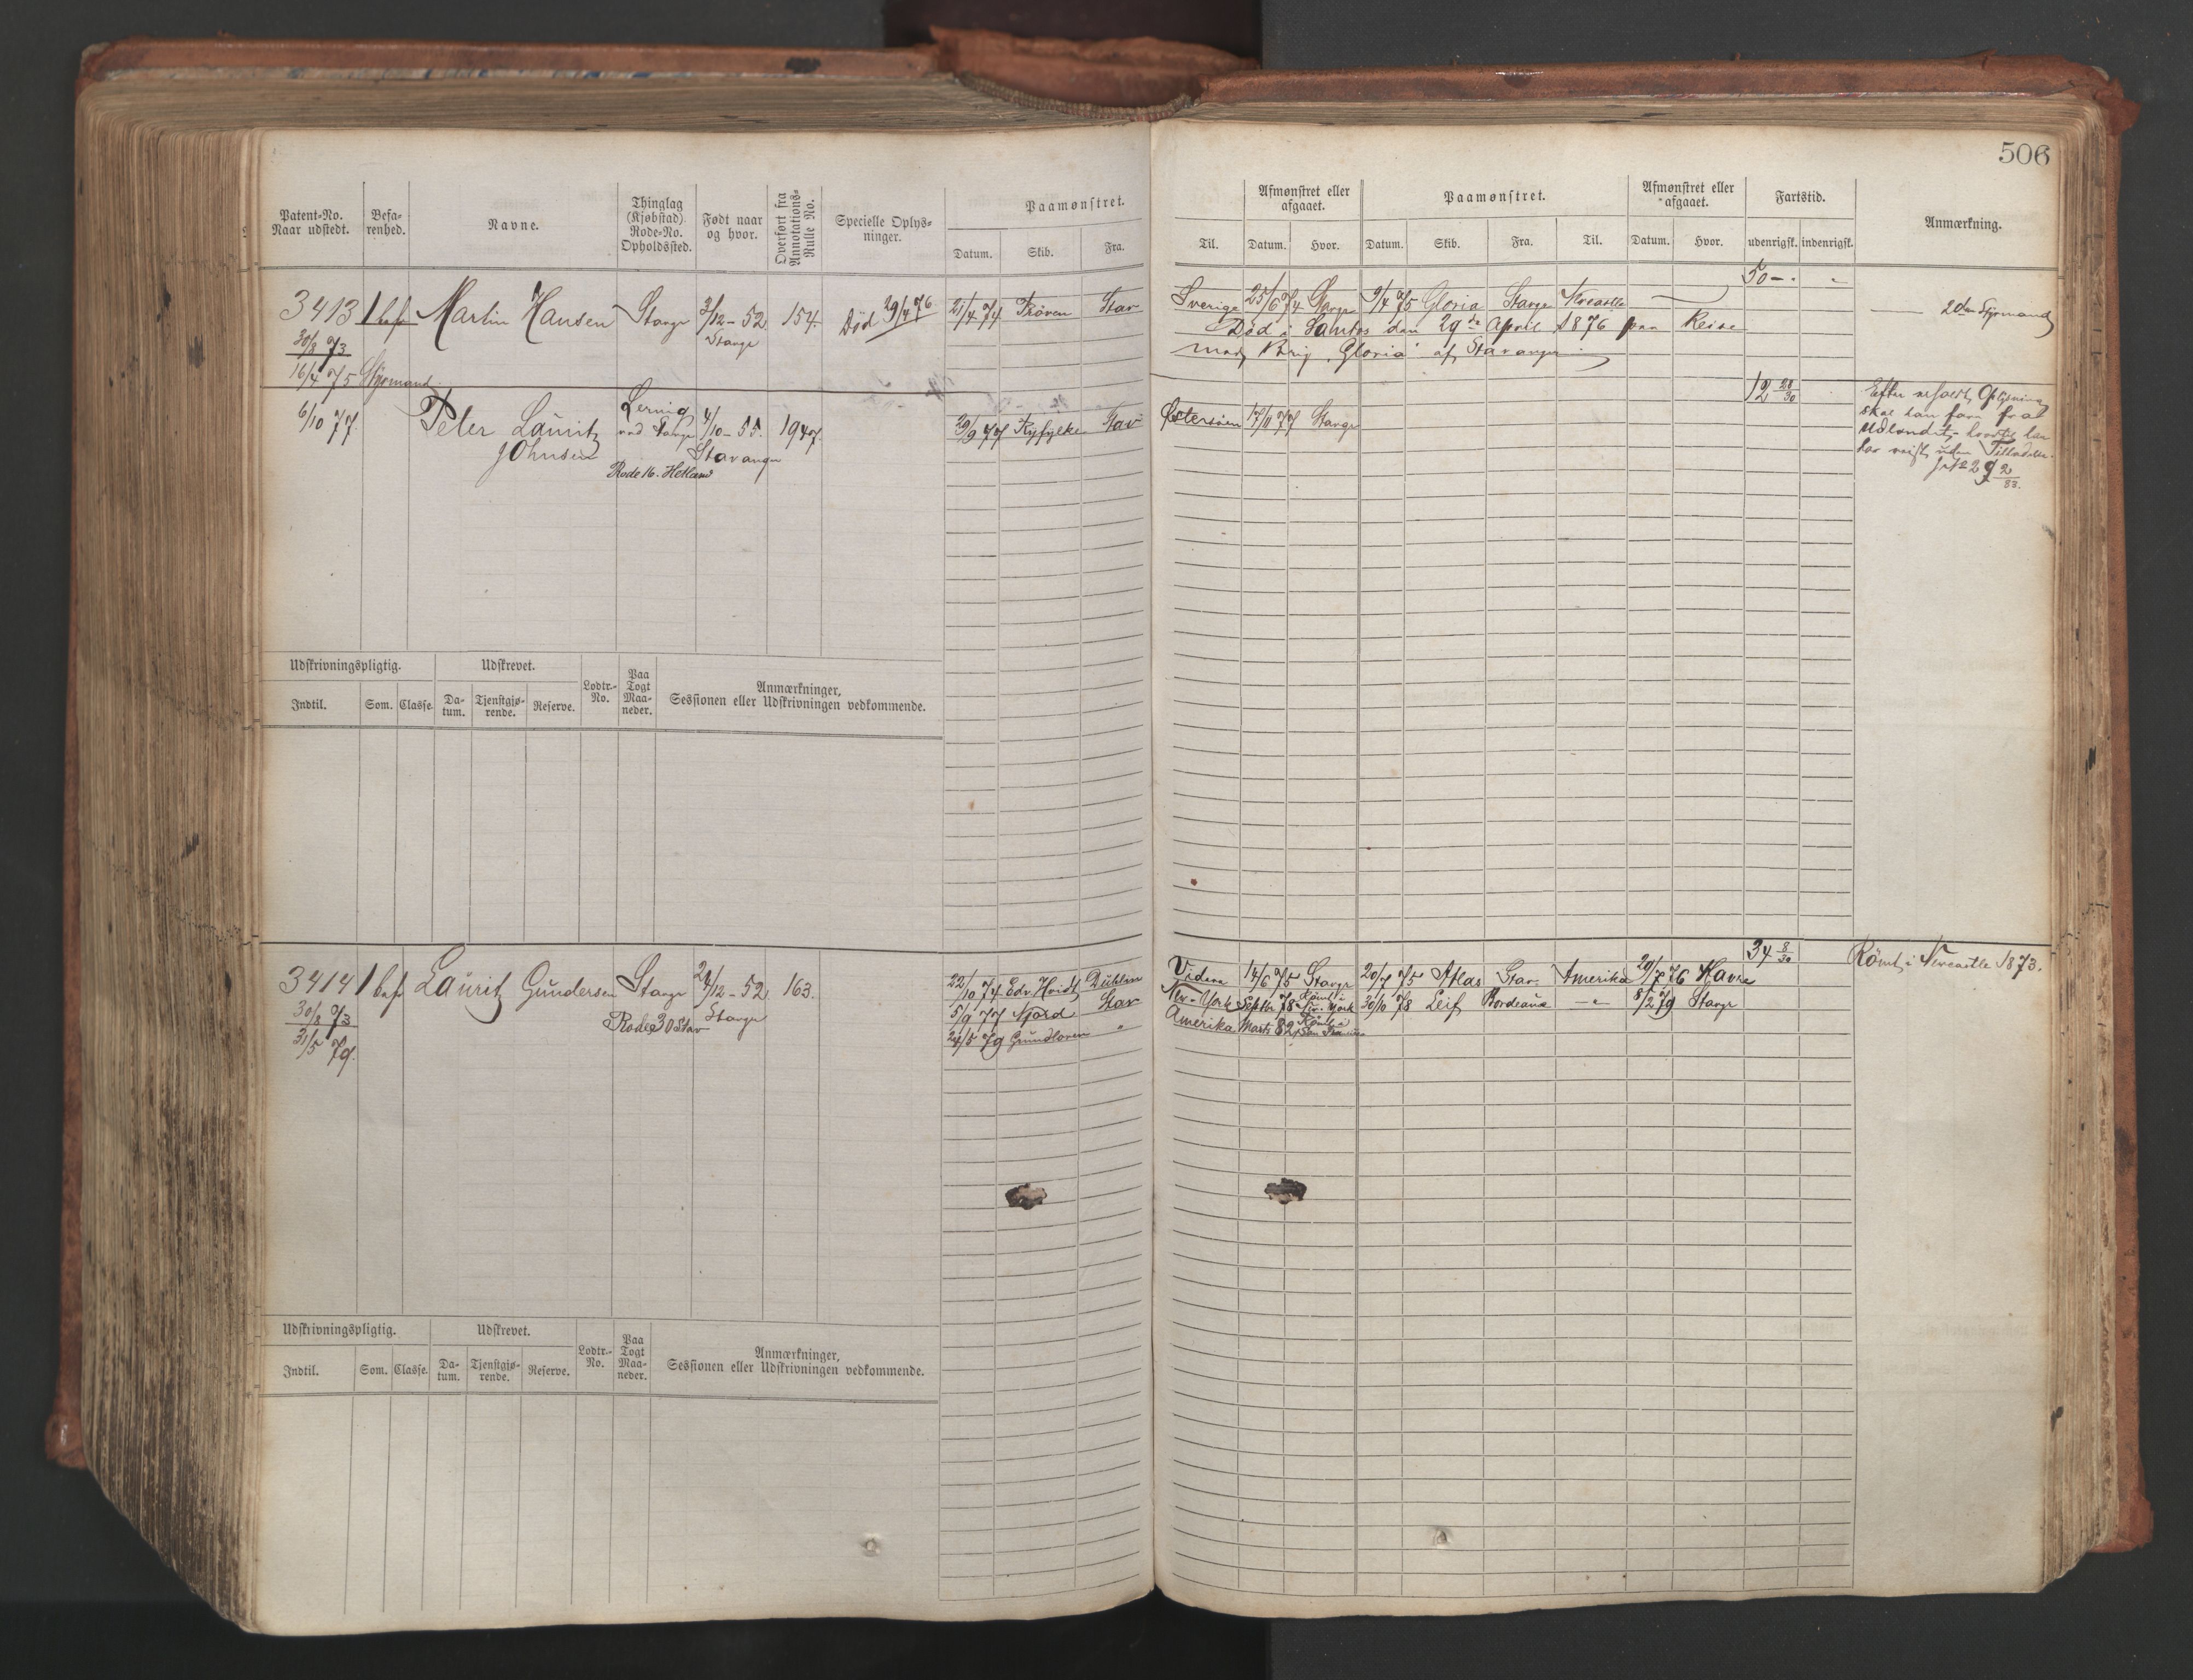 506
Patent-No. Naar udstedt.
Befa-renhed.
Navne.
Thinglag (Kjøbstad) Rode-No. Opholdssted.
Født naar og hvor.
Overført fra Annotations-Rulle No.
Specielle Oplys-ninger.
Paamønstret.
Datum. Skib. Fra.
Til.
Afmønstret eller afgaaet.
Datum. Hvor.
Paamønstret.
Datum. Skib. Fra. Til.
Afmønstret eller afgaaet.
Datum. Hvor.
Fartstid.
udenrigsk. indenrigsk.
Anmærkning.
3413 1 bef Martin Hansen Stavgr 3/12 - 52. 154. Død 29/4 76 21/4 74 Prøven Stav
Stavgr
30/8 73
16/4 75 Styrmand
50 - .
Sverige 25/6 74 Stavgr 9/4 75 Gloria Stavgr Newcastle 2den Styrmand
Død i Santos den 29de April 1876 paa Reise
med Brig "Gloria" af Stavanger
6/10 77 Peter Lauritz Johnsen 4/10 - 55. 1947. 29/9 77 Ryfylke Stav
Stavanger
Rode 16. Hetland
12 28/30
Østersøen 17/11 77 Stavgr
Efter
skal han fare fra
Udlandet,
har reist uden Tilladelse.
Udskrivningspligtig. Udskrevet.
Indtil. Som. Classe. Da-tum. Tjenstgjø-rende. Reserve. Lodtr.-No. Paa Togt Maa-neder. Anmærkninger, Sessionen eller Udskrivningen vedkommende.
3414 1 bef Lauritz Gundersen Stavgr 24/12 - 52. 163.
Stavgr
Rode 30 Stav
30/8 73
31/5 79.
22/10 74 Edv. Hvidt Dublin
5/9 77 Njord Stav
24/5 79 "
34 8/30
Rømt i Newcastle 1873.
14/6 75 Stavgr 20/7 75 Atlas Stav. Amerika 29/7 76 Havre
New-York Septbr 78 Rømt i New-York 30/10 78 Leif Bordeaux — " — 8/2 79 Stavgr
Amerika Marts 82 Rømt i San Francisco
Udskrivningspligtig. Udskrevet.
Indtil. Som. Classe. Da-tum. Tjenstgjø-rende. Reserve. Lodtr.-No. Paa Togt Maa-neder. Anmærkninger, Sessionen eller Udskrivningen vedkommende.